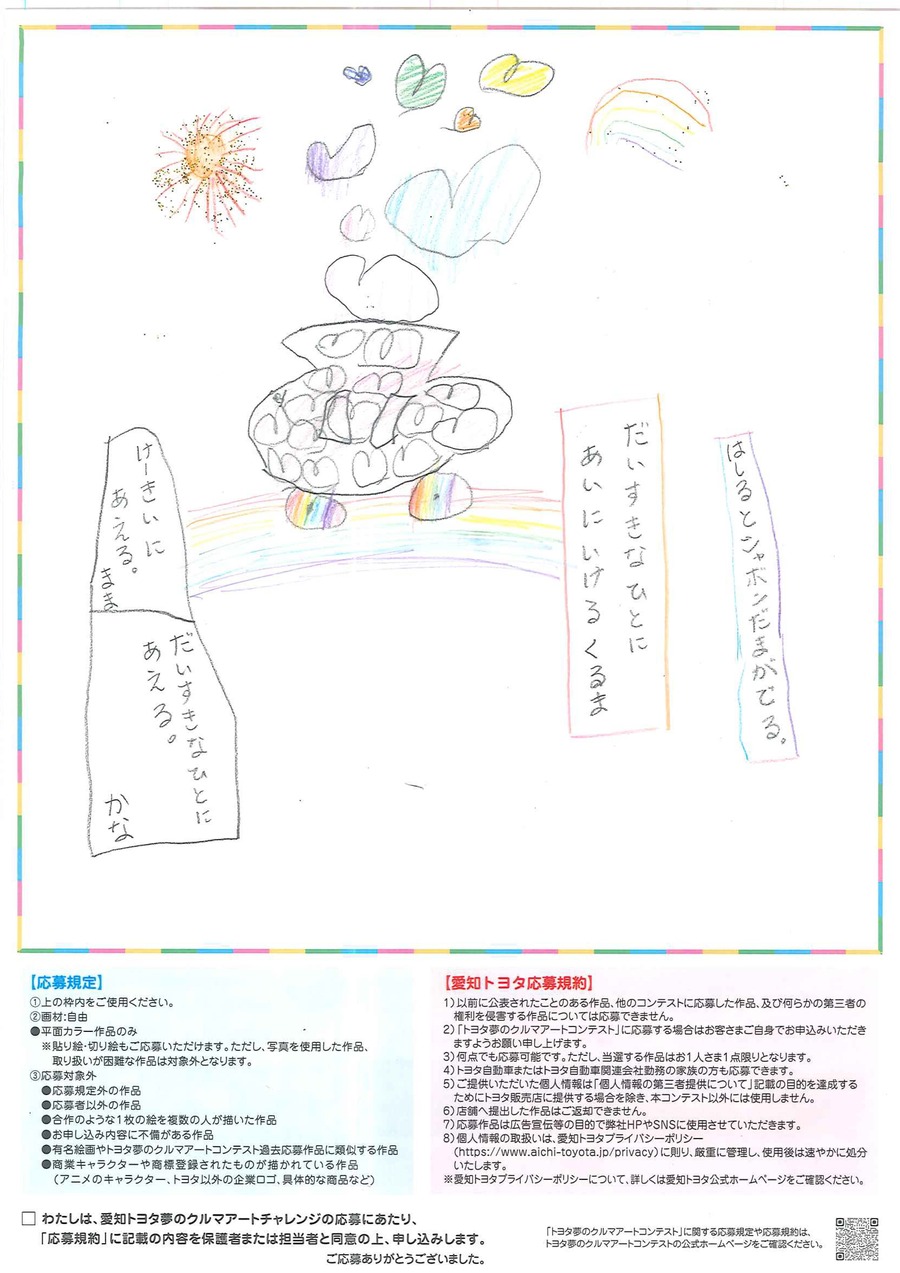 はしるとシャボンだまがでる。
だいすきなひとに
あいにいけるくるま
けーきいに
あえる。
まま
だいすきなひとに
あえる。
かな
【応募規定】
①上の枠内をご使用ください。
②画材:自由
●平面カラー作品のみ
※貼り絵・切り絵もご応募いただけます。ただし、写真を使用した作品、
取り扱いが困難な作品は対象外となります。
③応募対象外
●応募規定外の作品
●応募者以外の作品
●合作のような1枚の絵を複数の人が描いた作品
●お申し込み内容に不備がある作品
●有名絵画やトヨタ夢のクルマアートコンテスト過去応募作品に類似する作品
●商業キャラクターや商標登録されたものが描かれている作品
(アニメのキャラクター、トヨタ以外の企業ロゴ、具体的な商品など)
【愛知トヨタ応募規約】
1)以前に公表されたことのある作品、他のコンテストに応募した作品、及び何らかの第三者の
権利を侵害する作品については応募できません。
2)「トヨタ夢のクルマアートコンテスト」に応募する場合はお客さまご自身でお申込みいただき
ますようお願い申し上げます。
3)何点でも応募可能です。ただし、当選する作品はお1人さま1点限りとなります。
4)トヨタ自動車またはトヨタ自動車関連会社勤務の家族の方も応募できます。
5)ご提供いただいた個人情報は「個人情報の第三者提供について」記載の目的を達成する
ためにトヨタ販売店に提供する場合を除き、本コンテスト以外には使用しません。
6)店舗へ提出した作品はご返却できません。
7)応募作品は広告宣伝等の目的で弊社HPやSNSに使用させていただきます。
8)個人情報の取扱いは、愛知トヨタプライバシーポリシー
(https://www.aichi-toyota.jp/privacy)に則り、厳重に管理し、使用後は速やかに処分
いたします。
※愛知トヨタプライバシーポリシーについて、詳しくは愛知トヨタ公式ホームページをご確認ください。
わたしは、愛知トヨタ夢のクルマアートチャレンジの応募にあたり、
「応募規約」に記載の内容を保護者または担当者と同意の上、申し込みします。
ご応募ありがとうございました。
「トヨタ夢のクルマアートコンテスト」に関する応募規定や応募規約は、
トヨタ夢のクルマアートコンテストの公式ホームページをご確認ください。